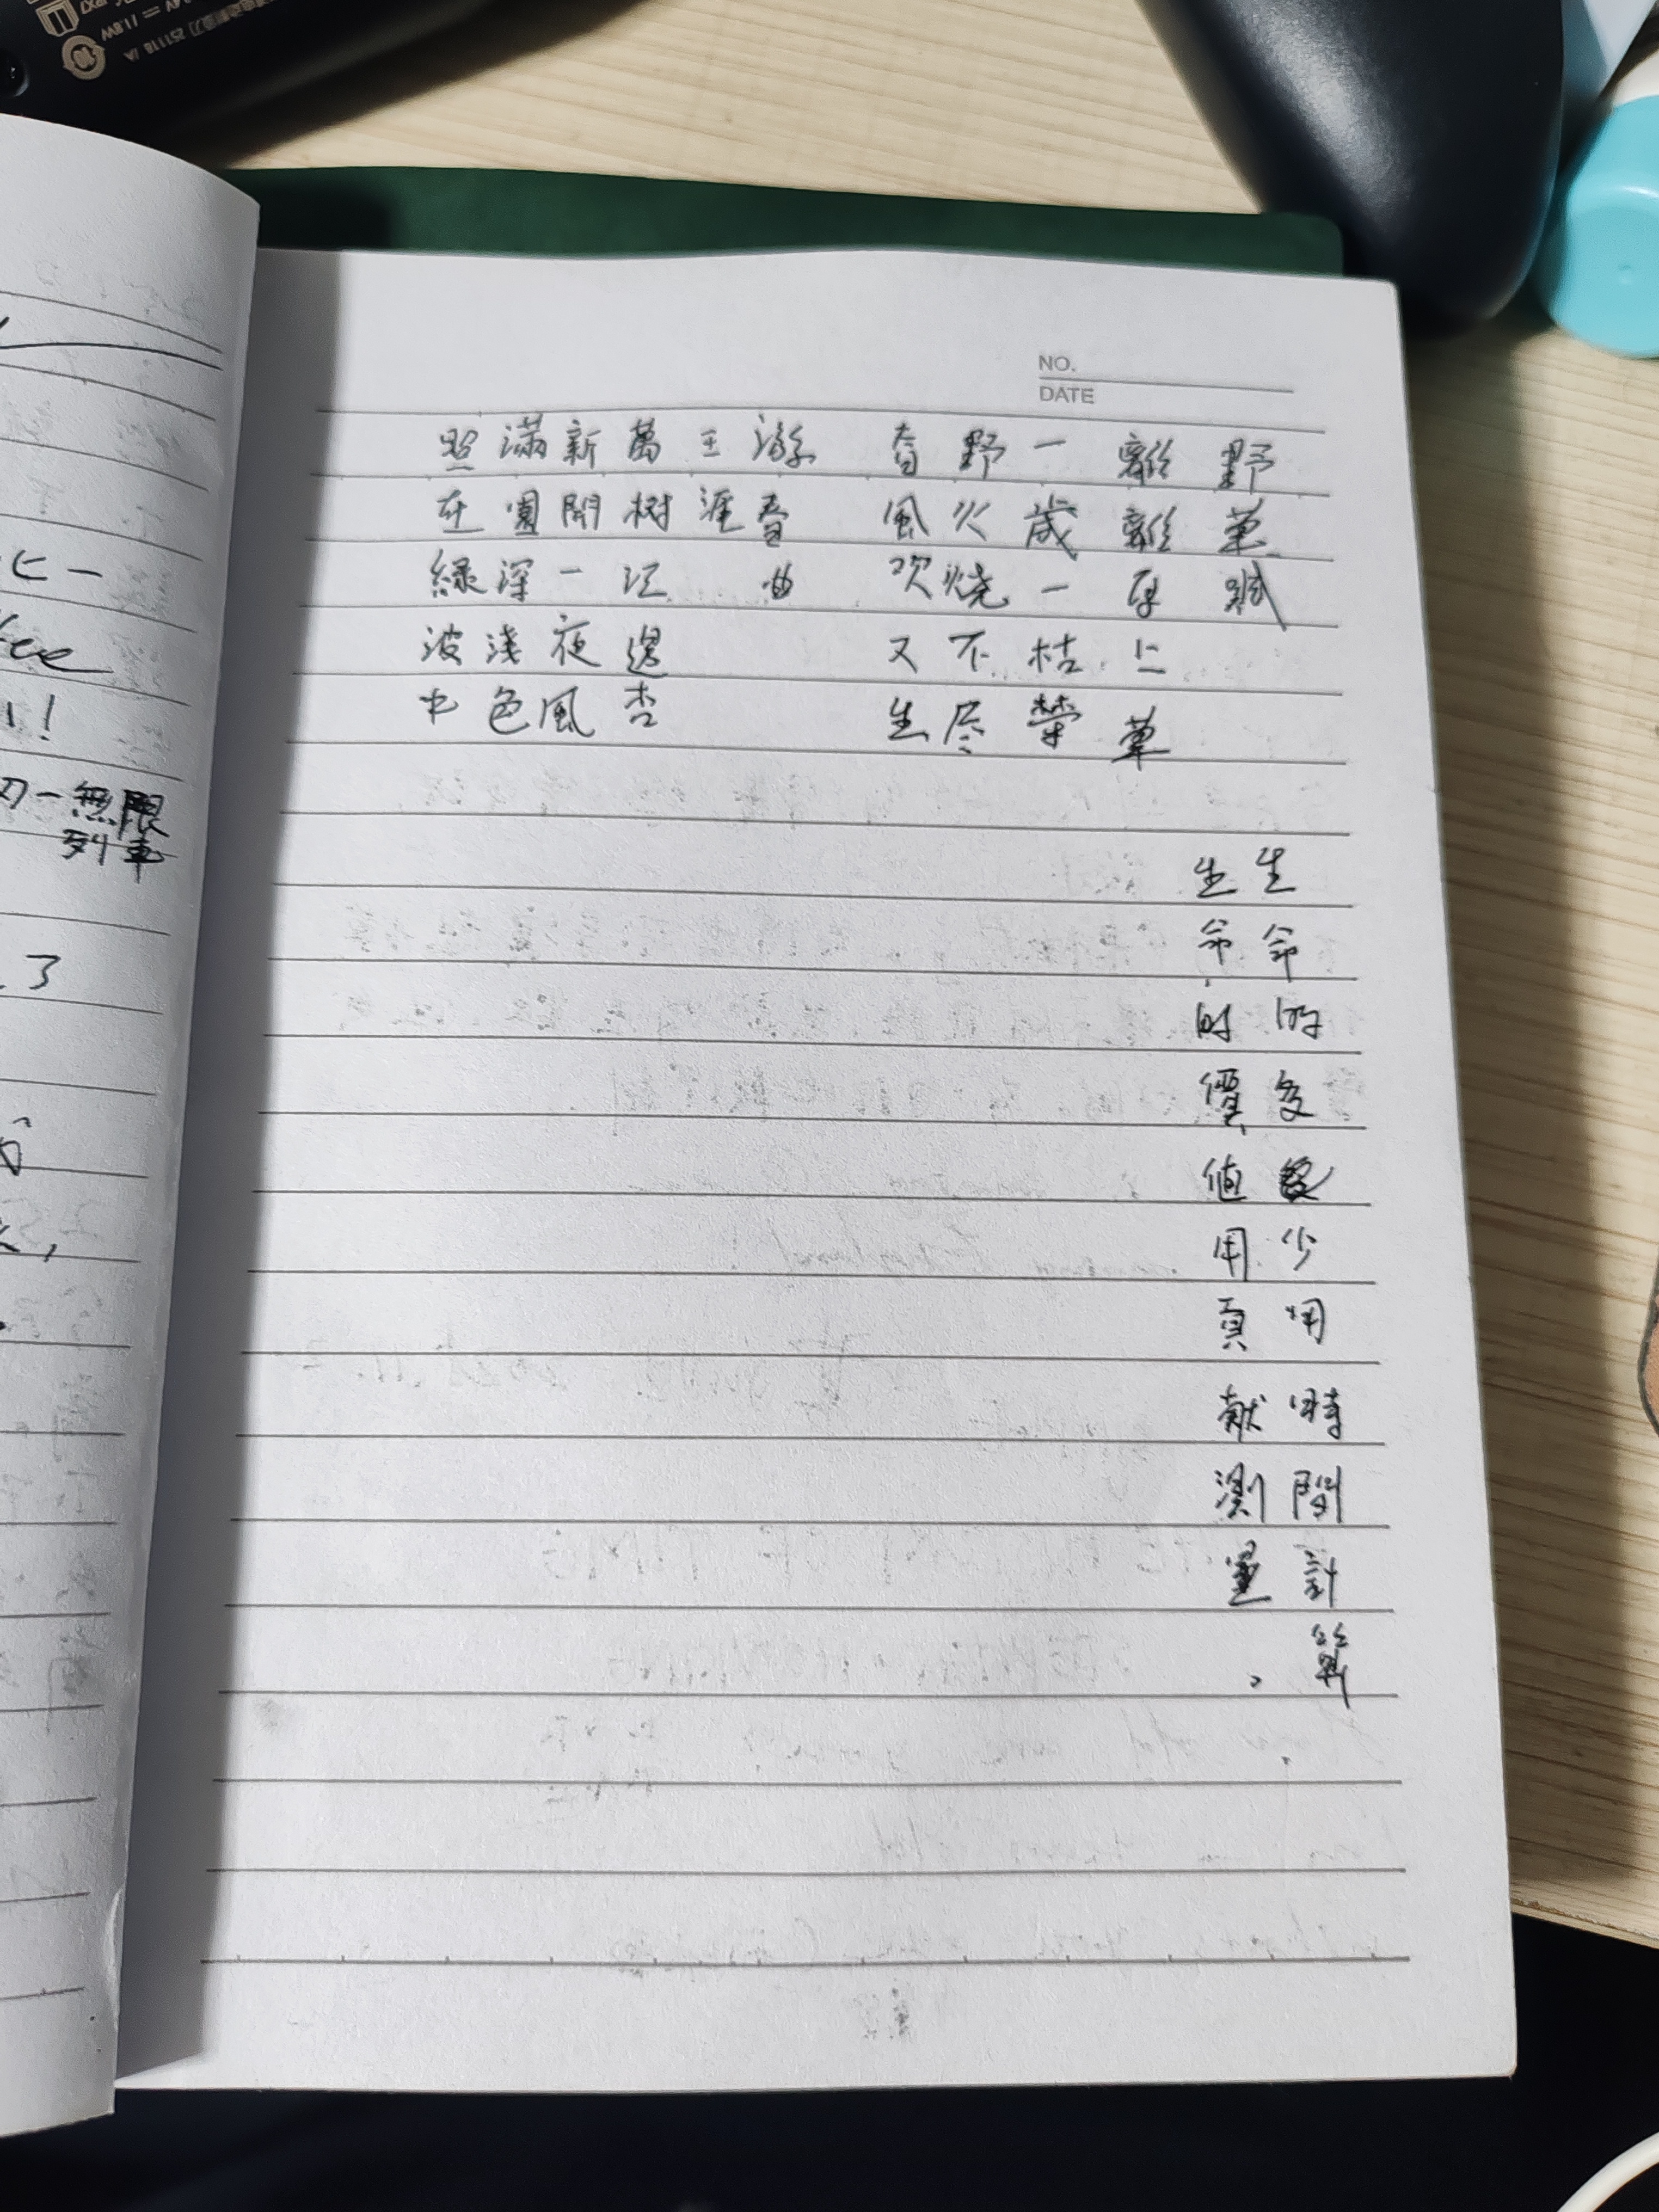 野草賦
離離原上草
一歲一枯榮
野火燒不尽
春風吹又生
游春曲
王涯
萬树江邊杏
新開一夜風
滿園深淺色
照在綠波中
生命的多少用時間計算
生命的價值用貢献測量。
NO.
DATE
無限
列車
了